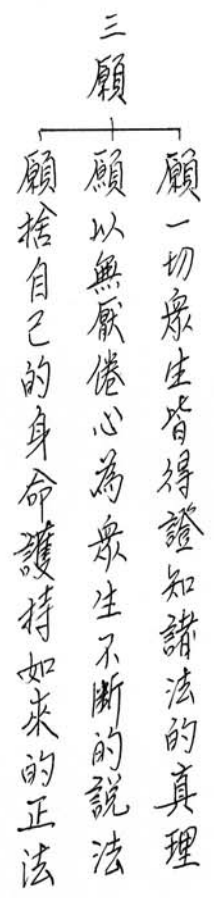 三願
願一切眾生皆得證知諸法的真理
願以無厭倦心為眾生不斷的說法
願捨自己的身命護持如來的正法